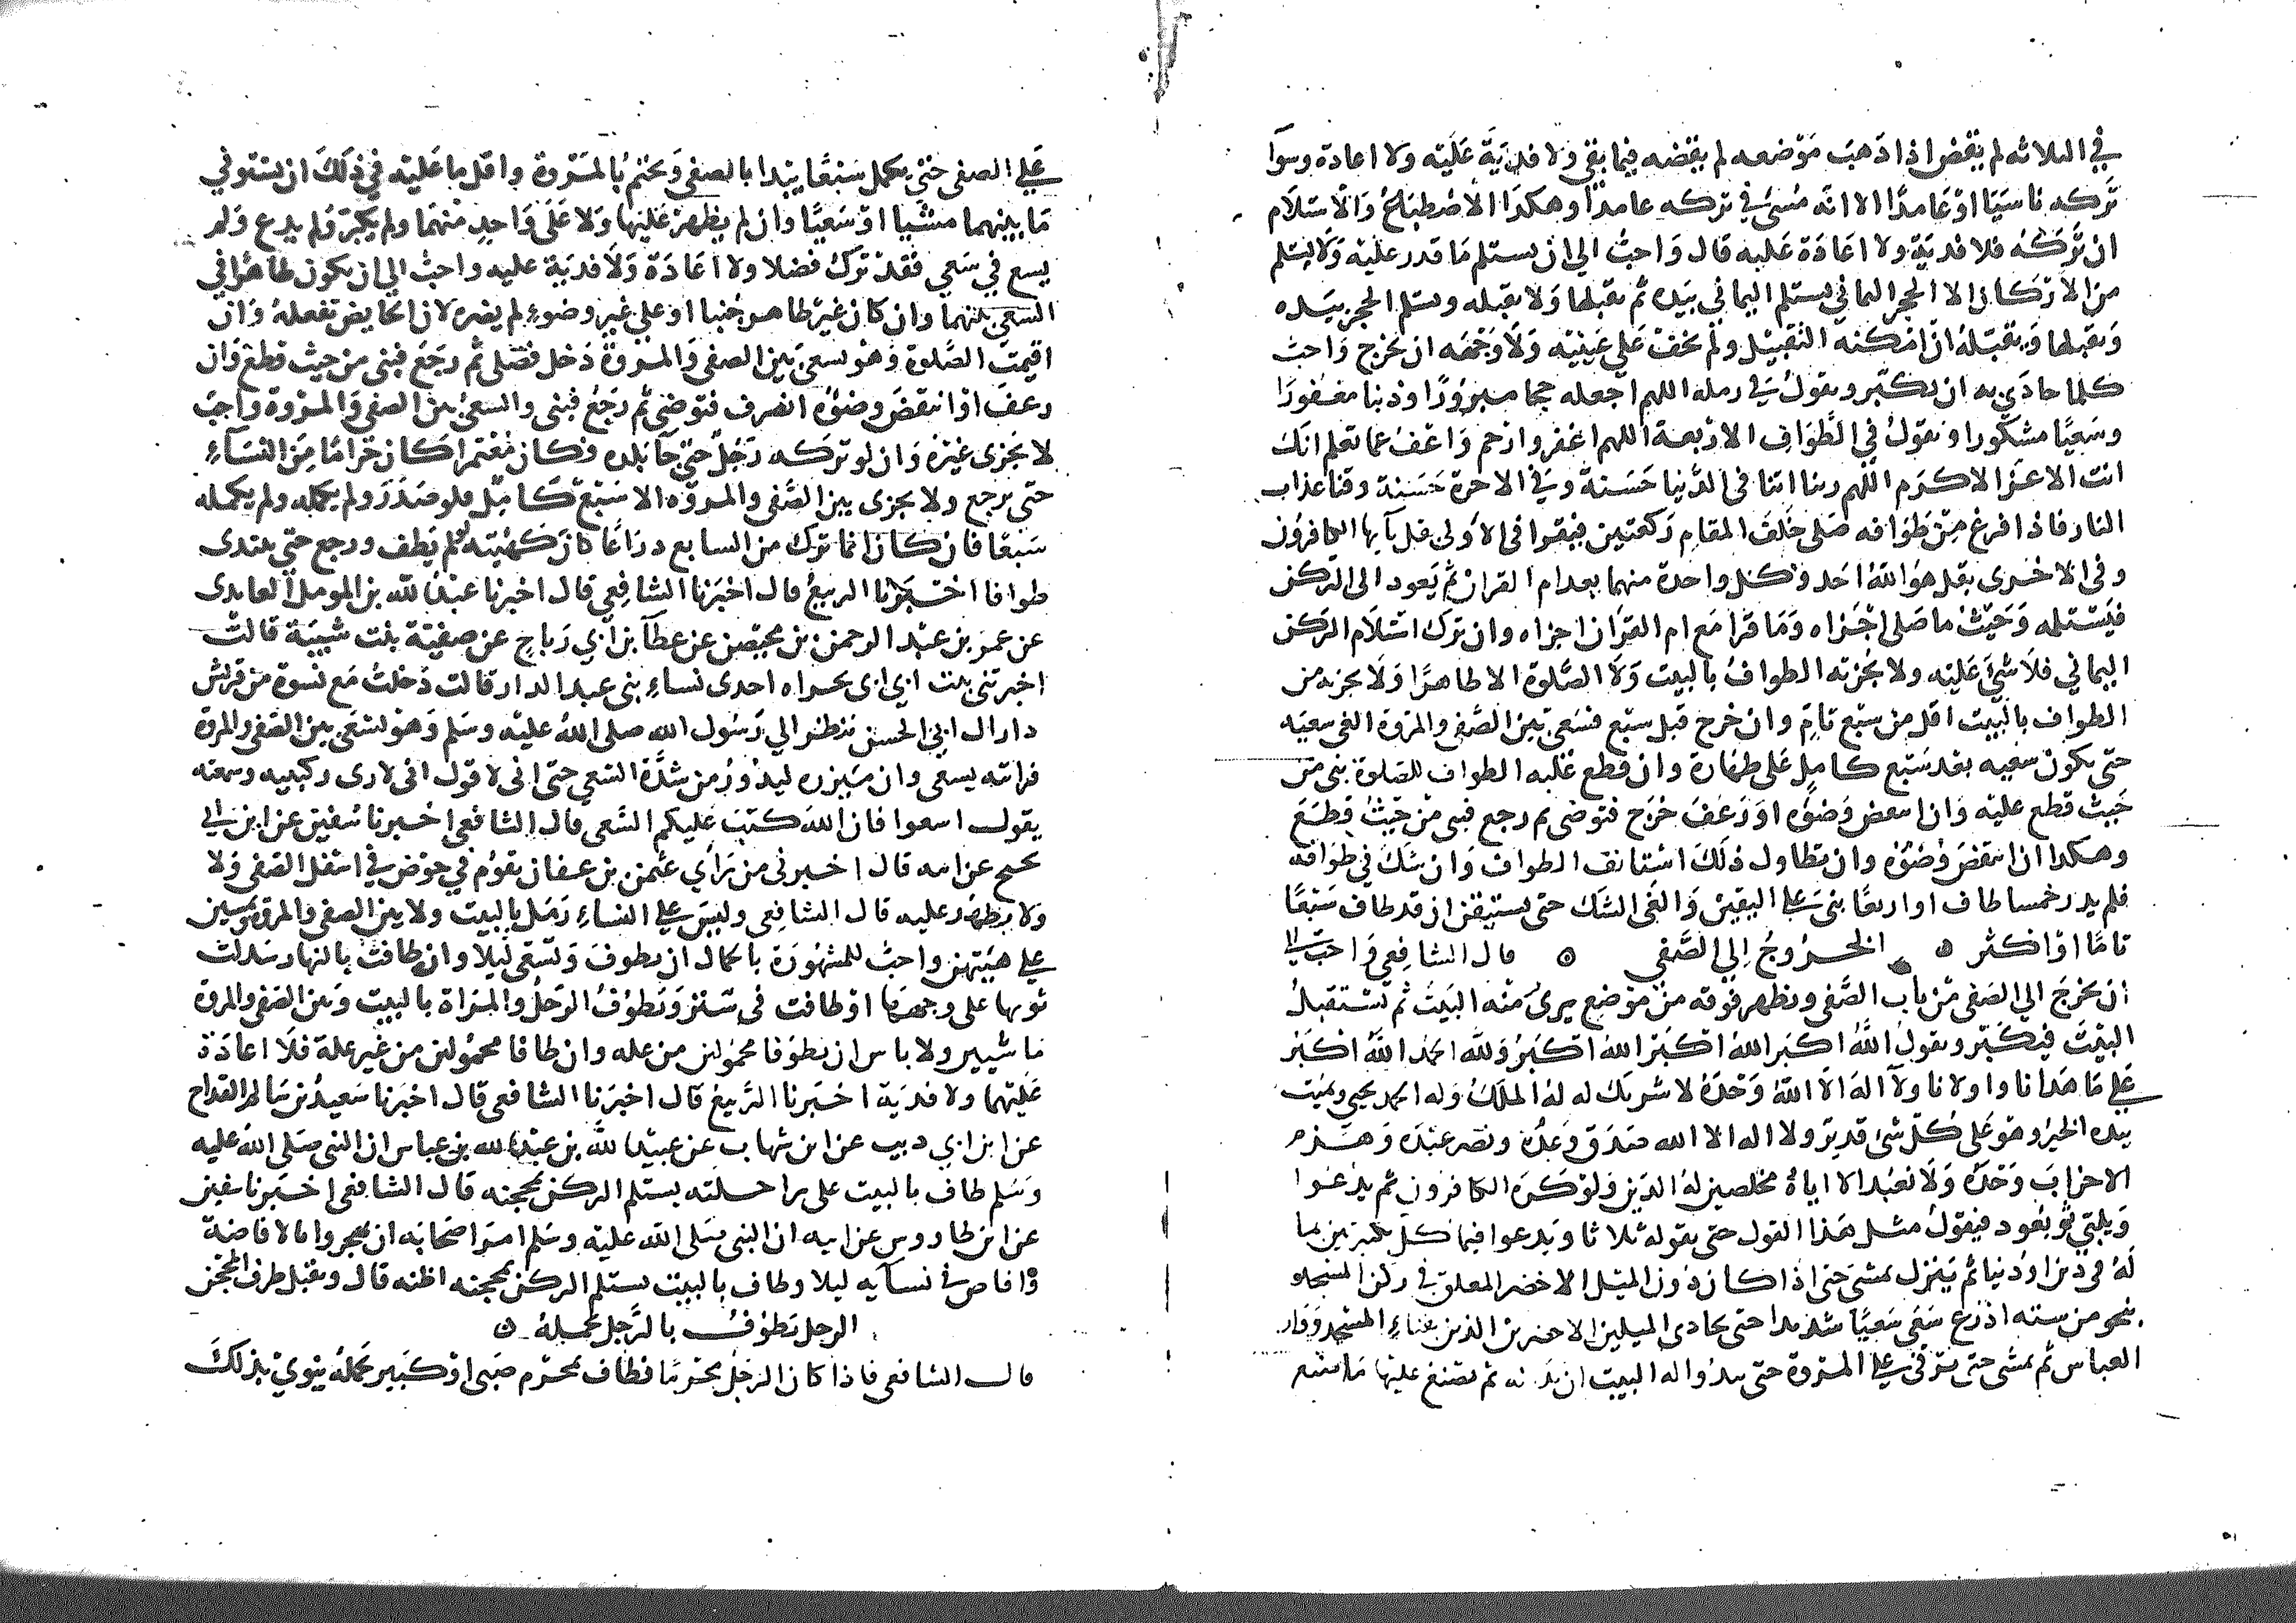 في الثلاثه لم يقض اذا ذهب موضعه لم يقضه فيما بقي ولا فدية عليه ولا اعادة وسوآ
تركه ناسيا او عامدا الا انه مسئ في تركه عامدا وهكذا الاضطباع والاستلام
ان تركه فلا فدية ولا اعادة عليه قال واحب الي ان يستلم ما قدر عليه ولا يستلم
من الاركان الا الحجر اليماني يستلم اليماني بيده ثم يقبلها ولا يقبله ويستلم الحجر بيده
ويقبلها ويقبله ان امكنه التقبيل ولم يخف على عينيه ولا وجهه ان يخرج واحب
كلما حاذى به ان يكبر ويقول في رمله اللهم اجعله حجا مبرورا وذنبا مغفورا
وسعيا مشكورا ويقول في الطواف الاربعة اللهم اغفر وارحم واعف عما تعلم انك
انت الاعز الاكرم اللهم ربنا اتنا في الدنيا حسنة وفي الاخرة حسنة وقنا عذاب
النار فاذا فرغ من طوافه صلى خلف المقام ركعتين فيقرا في الاولى قل يآيها الكافرون
وفي الاخرى بقل هو الله احد وكل واحدة منهما بعد ام القران ثم يعود الى الركن
فيستلمه وحيث ما صلى اجزاه وما قرا مع ام القران اجزاه وان ترك استلام الركن
اليماني فلا شئ عليه ولا يجزيه الطواف بالبيت ولا الصلوة الا طاهرا ولا يجزيه من
الطواف بالبيت اقل من سبع تام وان خرج قبل سبع فسعى بين الصفى والمروة الغى سعيه
حتى يكون سعيه بعد سبع كامل على طهارة وان قطع عليه الطواف للصلوة بنى من
حيث قطع عليه وان انتقض وضوءه او رعف خرج فتوضى ثم رجع فبنى من حيث قطع
وهكذا ان انتقض وضوءه وان تطاول ذلك استانف الطواف وان شك في طوافه
فلم يدر خمسا طاف او اربعا بنى على اليقين والغى الشك حتى يستيقن ان قد طاف سبعا
تاما او اكثر ه الخروج الى الصفى ه قال الشافعي واحب الي
ان يخرج الى الصفى من باب الصفى ويظهر فوقه من موضع يرى منه البيت ثم يستقبل
البيت فيكبر ويقول الله اكبر الله اكبر الله اكبر ولله الحمد الله اكبر
على ما هدانا واولانا ولا اله الا الله وحده لا شريك له له الملك وله الحمد يحيي ويميت
بيده الخير وهو على كل شئ قدير ولا اله الا الله صدق وعده ونصر عبده وهزم
الاحزاب وحده ولا نعبد الا اياه مخلصين له الدين ولو كره الكافرون ثم يدعوا
ويلبي ثم يعود فيقول مثل هذا القول حتى يقوله ثلاثا ويدعوا فيما كل تكبيرتين بما
له في دين او دنيا ثم ينزل يمشي حتى اذا كان دون الميل الاخضر المعلق في ركن المسجد
بنحو من ستة اذرع سعى سعيا شديدا حتى يحاذي الميلين الاخضرين الذين بفناء المسجد ودار
العباس ثم يمشي حتى يرقى على المروة حتى يبدوا له البيت ان بدا له ثم يصنع عليها ما صنع
على الصفى حتى يكمل سبعا يبدا بالصفى ويختم بالمروة واقل ما عليه في ذلك ان يستوفي
ما بينهما مشيا او سعيا وان لم يظهر عليها ولا على واحد منهما ولم يكبر ولم يدع ولم
يسع في سعي فقد ترك فضلا ولا اعادة ولا فدية عليه واحب الي ان يكون طاهرا في
السعي بينهما وان كان غير طاهر جنبا او على غير وضوء لم يضره لان الحايض تفعله وان
اقيمت الصلوة وهو يسعى بين الصفى والمروة دخل فصلى ثم رجع فبنى من حيث قطع وان
رعف او انتقض وضوءه انصرف فتوضى ثم رجع فبنى والسعي بين الصفى والمروة واجب
لا يجزى غيره وان لو تركه رجل حتى جآ بلده فكان معتمرا كان حراما من النسآء
حتى يرجع ولا يجزى بين الصفى والمروه الا سبع كامل فلو صدر ولم يكمله ولم يكمله
سبعا فان كان انما ترك من السابع دراعا كان كهيته لو لم يطف ورجع حتى يبتدى
طوافا اخبرنا الربيع قال اخبرنا الشافعي قال اخبرنا عبد الله بن المومل العابدى
عن عمر بن عبد الرحمن بن محيصن عن عطآ بن ابي رباح عن صفية بنت شيبة قالت
اخبرتني بنت ابي تجراه احدى نساء بنى عبد الدار قالت دخلت مع نسوة من قريش
دار ال ابي الحسين ننظر الي رسول الله صلى الله عليه وسلم وهو يسعى بين الصفى والمروة
فرايته يسعى وان ميزره ليدور من شدة السعي حتى انى لاقول انى لارى ركبتيه وسمعته
يقول اسعوا فان الله كتب عليكم السعى قال الشافعي اخبرنا سفين عن ابن ابي
نجيح عن ابيه قال اخبرني من راي عثمن بن عفان يقوم في حوض في اسفل الصفى ولا
ولا يظهر عليه قال الشافعي وليس على النساء رمل بالبيت ولا بين الصفى والمروة ويمشين
على هينتهن واحب للمشهورة بالجمال ان تطوف وتسعى ليلا وان طافت بالنهار سدلت
ثوبها على وجهها او طافت في ستر ويطوف الرجل والمراة بالبيت وبين الصفى والمروة
ماشيين ولا باس ان يطوفا محمولين من عله وان طافا محمولين من غير علة فلا اعادة
عليهما ولا فدية اخبرنا الربيع قال اخبرنا الشافعي قال اخبرنا سعيد بن سالم القداح
عن ابن ابي ذيب عن ابن شهاب عن عبيد الله بن عبد الله بن عباس ان النبي صلى الله عليه
وسلم طاف بالبيت على راحلته يستلم الركن بمحجنه قال الشافعي اخبرنا سفين
عن ابن طاووس عن ابيه ان النبي صلى الله عليه وسلم امر اصحابه ان يهجروا بالافاضة
وافاض في نسآيه ليلا وطاف بالبيت يستلم الركن بمحجنه اظنه قال ويقبل طرف المحجن
الرجل يطوف بالرجل يحمله ه
قال الشافعي فاذا كان الرجل محرما فطاف بمحرم صبى او كبير يحمله ينوي بذلك